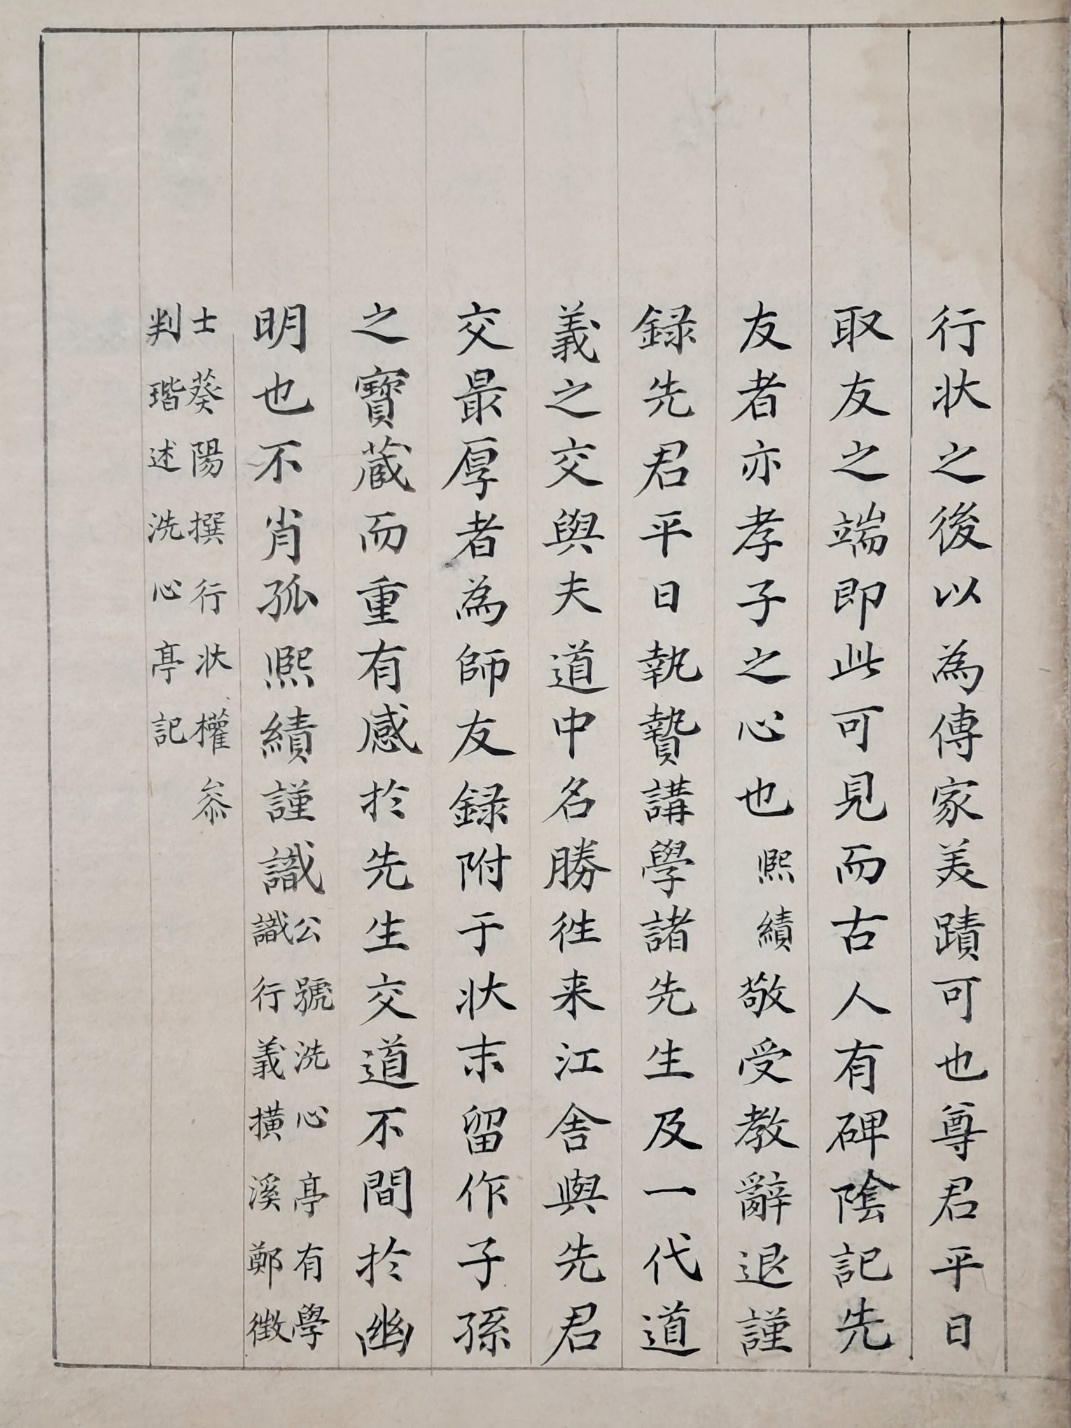 行状之後以為傳家美蹟可也尊君平日
取友之端即此可見而古人有碑陰記先
友者亦孝子之心也熙績敬受教辭退謹
録先君平日執贄講學諸先生及一代道
義之交與夫道中名勝徃来江舎與先君
交最厚者為師友録附于状末留作子孫
之寶蔵而重有感於先生交道不間於幽
明也不肖孤熙績謹識
公號洗心亭有學
識行義橫溪鄭徵
士葵陽撰行状權叅
判瑎述洗心亭記